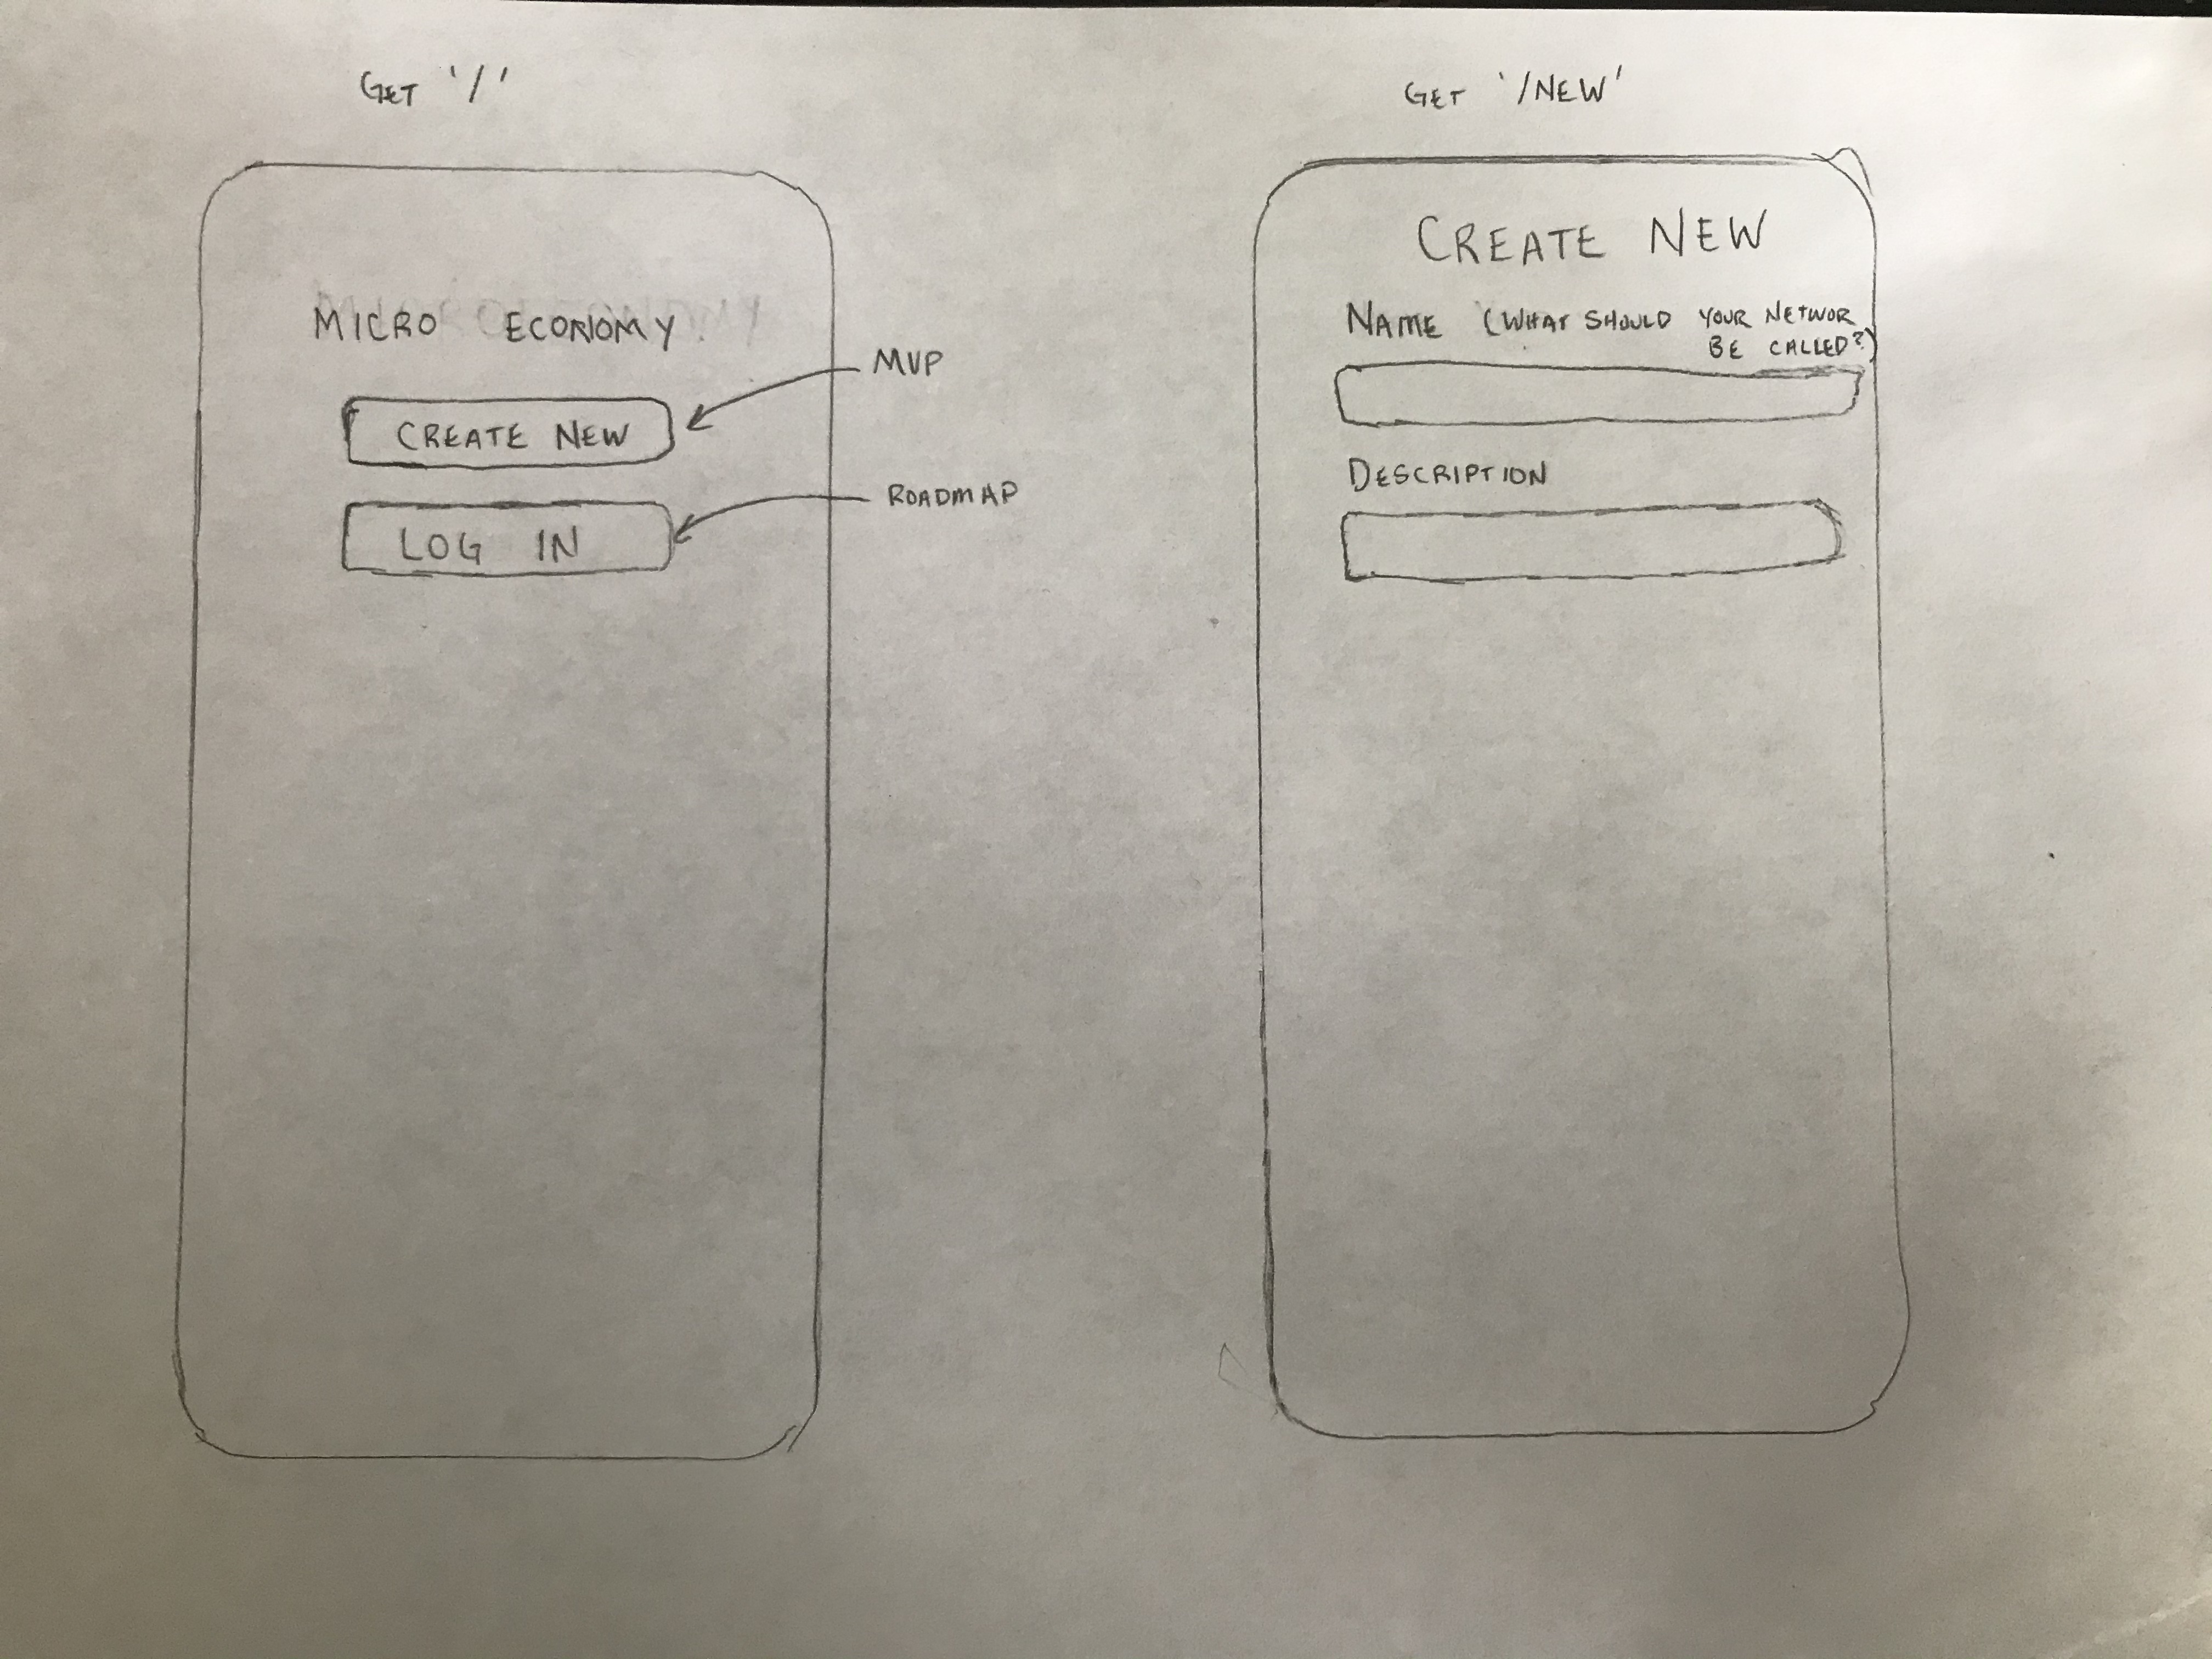 GET '/'
MICRO ECONOMY
CREATE NEW
LOG IN
MVP
ROADMAP
GET '/NEW'
CREATE NEW
NAME (WHAT SHOULD YOUR NETWOR
BE CALLED?)
DESCRIPTION